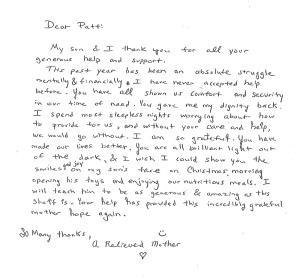 Dear Patti
My son & I thank you for all your
generous help and support.
This past year has been an absolute struggle
mentally & financially & I have never accepted help
before. You have all shown us comfort and security
in our time of need. You gave me my dignity back.
I spend most sleepless nights worrying about how
to provide for us, and without your care and help,
we would go without. I am so grateful. You have
made our lives better. You are all brilliant light out
of the dark, & I wish I could show you the
smiles and joy on my son's face on Christmas morning
opening his toys and enjoying our nutritious meals. I
will teach him to be as generous & amazing as this
staff is. Your help has provided this incredibly grateful
mother hope again.
So Many thanks,
A Relieved Mother